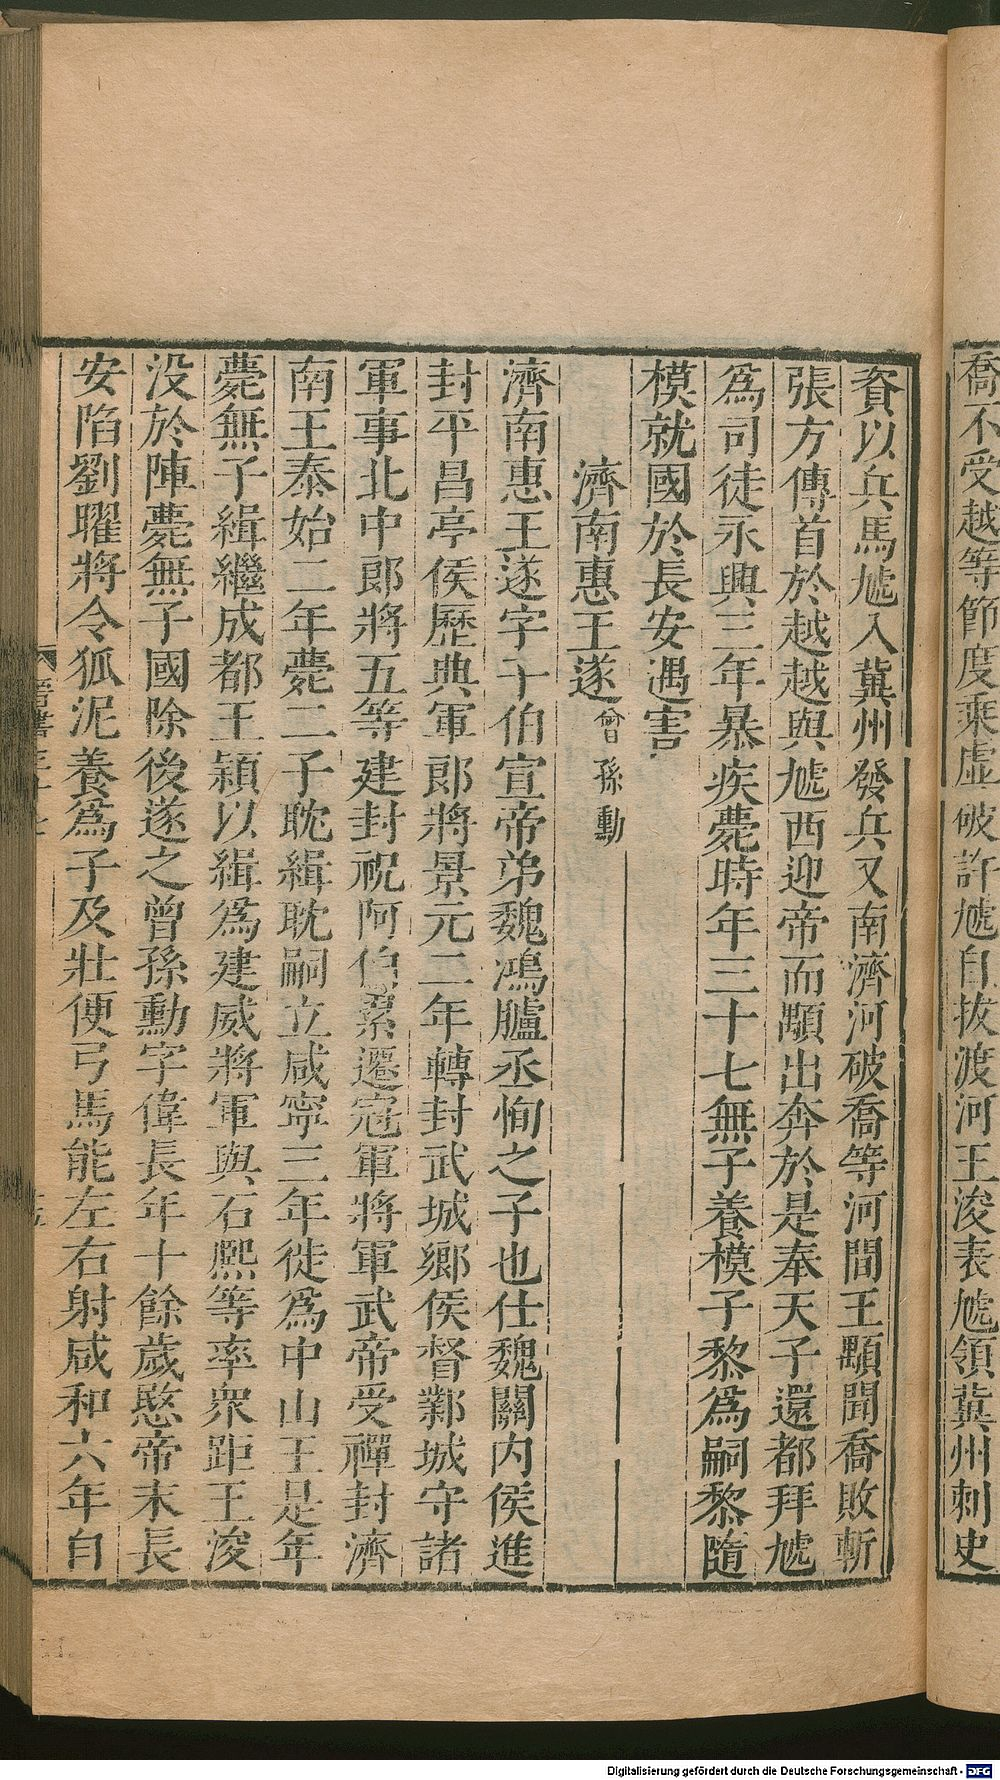 喬不受越等節度乘虛破許虓自拔渡河王浚表虓領冀州刺史
資以兵馬虓入冀州發兵又南濟河破喬等河間王顒聞喬敗斬
張方傳首於越越與虓西迎帝而顒出奔於是奉天子還都拜虓
爲司徒永興三年暴疾薨時年三十七無子養模子黎爲嗣黎隨
模就國於長安遇害
濟南惠王遂曾孫勳
濟南惠王遂字子伯宣帝弟魏鴻臚丞恂之子也仕魏關内侯進
封平昌亭侯歷典軍郎將景元二年轉封武城鄉侯督鄴城守諸
軍事北中郎將五等建封祝阿伯累遷冠軍將軍武帝受禪封濟
南王泰始二年薨二子耽緝耽嗣立咸寧三年徙爲中山王是年
薨無子緝繼成都王穎以緝爲建威將軍與石熙等率衆距王浚
没於陣薨無子國除後遂之曾孫勳字偉長年十餘歲愍帝末長
安陷劉曜將令狐泥養爲子及壯便弓馬能左右射咸和六年自
晉書三十七
Digitalisierung gefördert durch die Deutsche Forschungsgemeinschaft - DFG